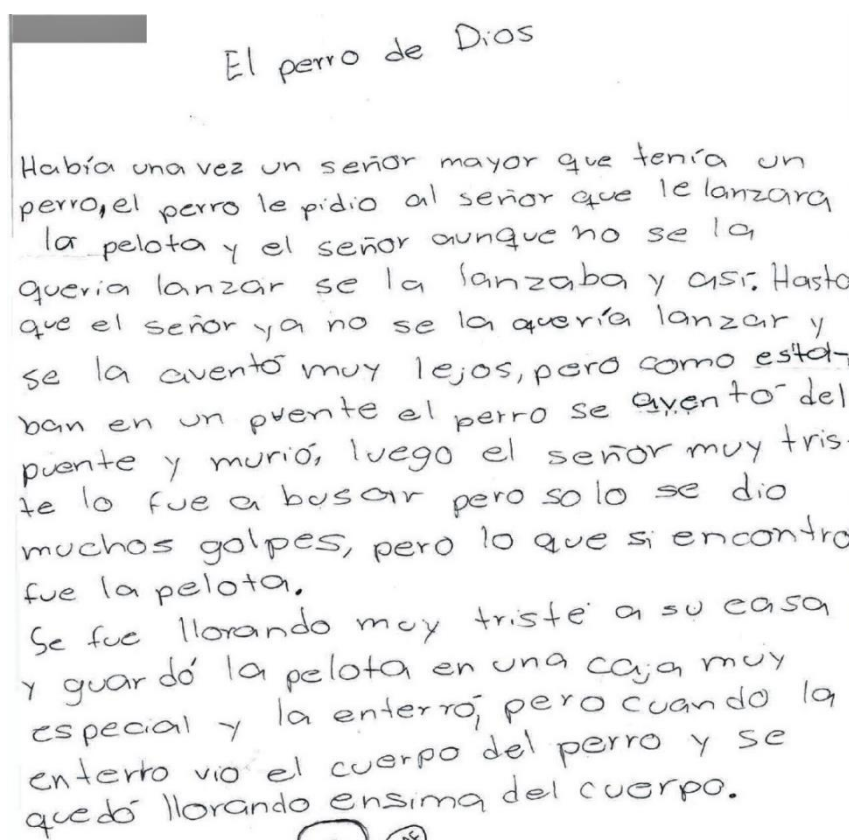 El perro de Dios
Había una vez un señor mayor que tenía un
perro, el perro le pidio al señor que le lanzara
la pelota y el señor aunque no se la
queria lanzar se la lanzaba y asi. Hasta
que el señor ya no se la quería lanzar y
se la aventó muy lejos, pero como esta-
ban en un puente el perro se aventó del
puente y murió, luego el señor muy tris-
te lo fue a buscar pero solo se dio
muchos golpes, pero lo que si encontro
fue la pelota.
Se fue llorando muy triste a su casa
y guardó la pelota en una caja muy
especial y la enterró, pero cuando la
enterro vio el cuerpo del perro y se
quedó llorando ensima del cuerpo.